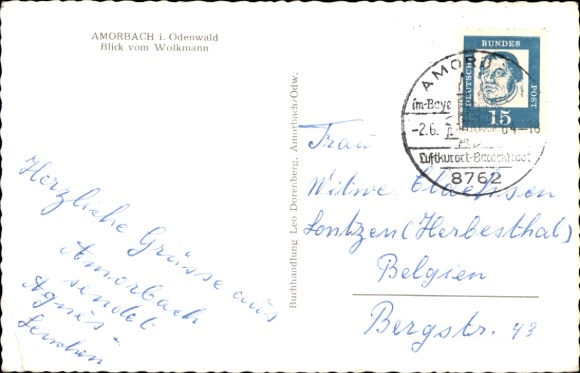 AMORBACH i. Odenwald
Blick vom Wolkmann
Herzliche Grüsse aus
Amorbach
sendet
Agnes u.
Buchhandlung Leo Dorenberg, Amorbach/Odw.
DEUTSCHE
BUNDES
POST
15
AMOR
im Baye
-2.6.
Luftkurort-Barockkust
8762
Frau
Witwe
Lontzen (Herbesthal)
Belgien
Bergstr. 43